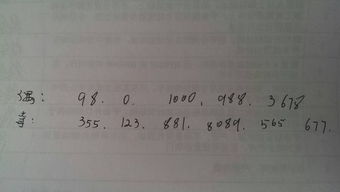 偶： 98. 0. 1000. 988. 3678
奇： 355. 123. 881. 8089. 565 677.